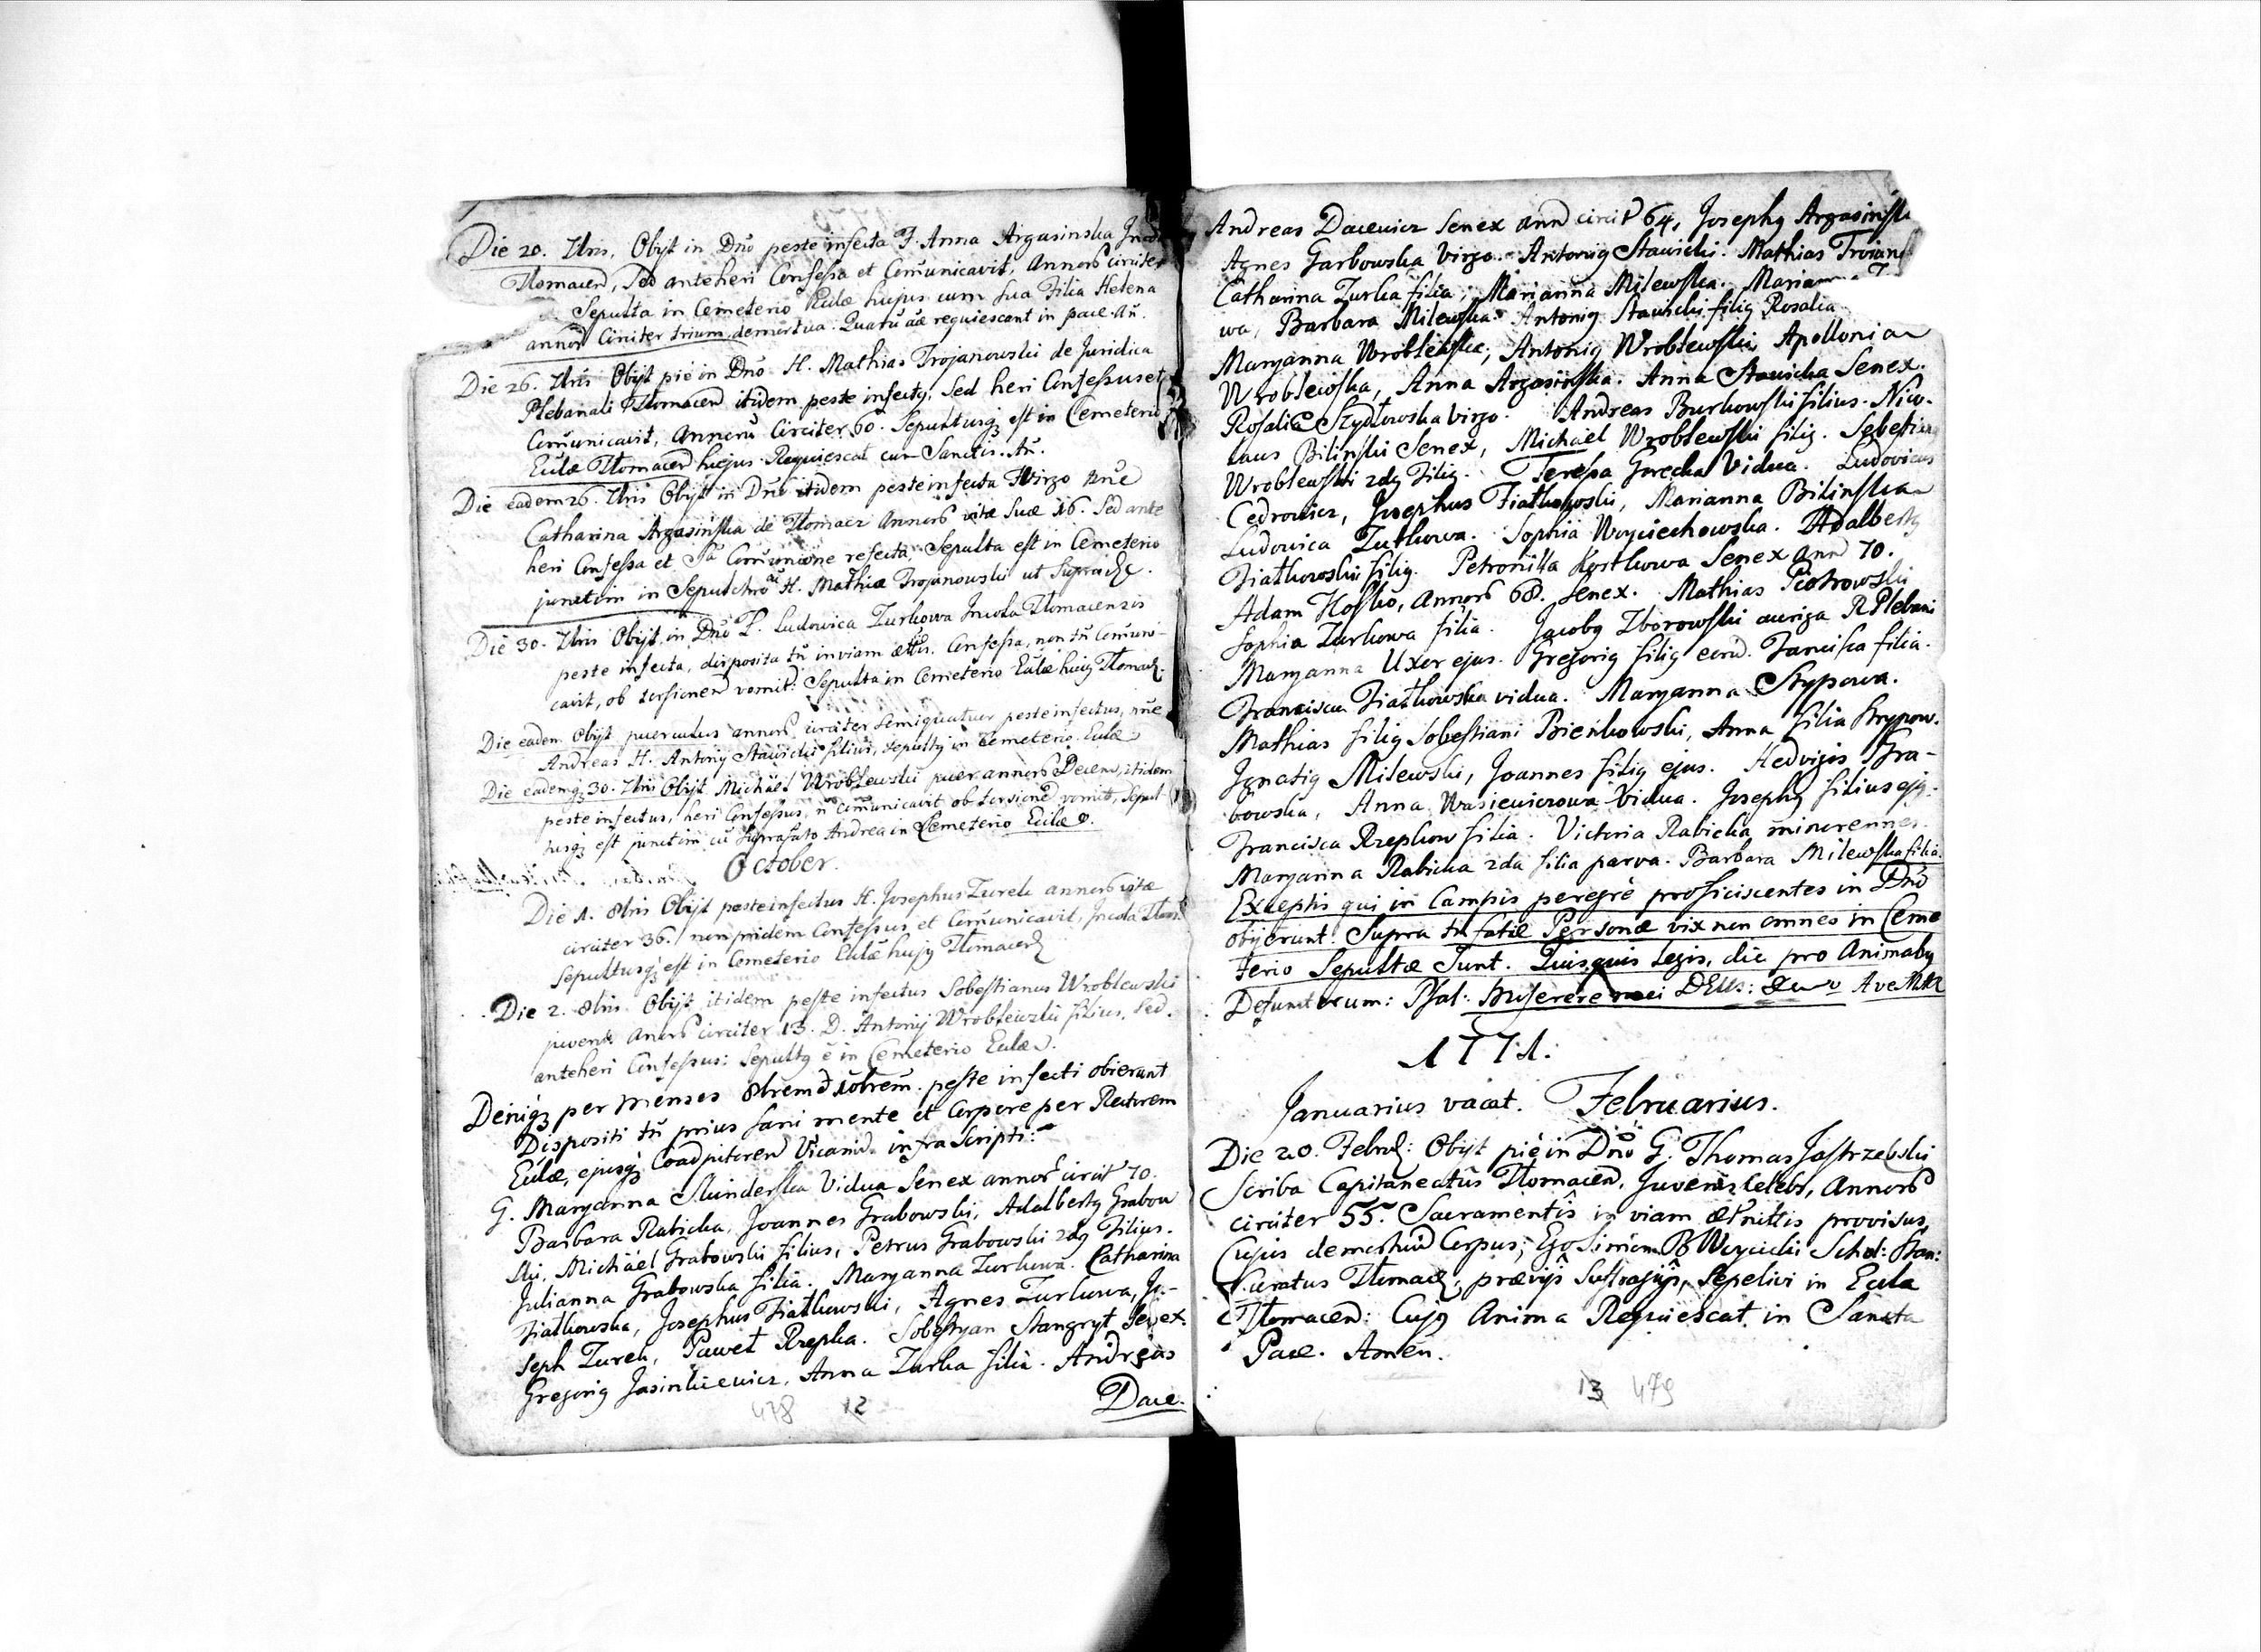 Die 20. 7bris. Obijt in Dño peste infecta F. Anna Argasinska
Tłomacen, Sed anteheri Confessa et Com̃unicavit, Annorũ circiter
Sepulta in Cemeterio Eccłæ hujus cum sua Filia Helena
annorũ Circiter trium demortua. Quarũ aæ requiescant in pace Añ.
Die 26. 7bris Obijt pie in Dño H. Mathias Trojanowski de Juridica
Plebanali Tłomacen itidem peste infectq, Sed heri Confessus et
Com̃unicavit, Annorũ Circiter 60. Sepultusqz est in Cemeterio
Eccłæ Tłomacen hujus. Requiescat cum Sanctis. Añ.
Die eadem 26. 7bris Obijt in Dño itidem peste infecta Virgo nñe
Catharina Argasinska de Tłomacz Annorũ vitæ suæ 16. Sed ante
heri Confessa et Sã Com̃unione refecta. Sepulta est in Cemeterio
junctim in Sepulchro H. Mathiæ Trojanowski ut Supra
Die 30. 7bris Obijt in Dño F. Ludovica Zurkowa Incola Tłomacensis
peste infecta, disposita tñ in viam ættis. Confessa, non tñ Com̃uni-
cavit, ob torsionem vomit: Sepulta in Cemeterio Eccłæ hujq Tłomacz.
Die eadem Obijt puerulus annorũ circiter semiquatuor peste infectus, nñe
Andreas H. Antonij Stawicki filius, sepultq in Cemeterio Eccłæ
Die eademqz 30. 7bris Obijt Michäel Wroblewski puer annorũ Decem, itidem
peste infectus, heri Confessus, ñ com̃unicavit ob torsionẽ vomitũ, Sepul-
tusqz est junctim cũ suprafato Andrea in Cemeterio Eccłæ
October.
Die 1. 8bris Obijt peste infectus H. Josephus Zurek annorũ vitæ
circiter 36. nonpridem Confessus et Com̃unicavit, Incola Tłom.
Sepultusqz est in Cemeterio Eccłæ hujq Tłomacen
Die 2. 8bris Obijt itidem peste infectus Sobestianus Wroblewski
juvenis Annorũ circiter 13. D. Antonij Wroblewski filius, Sed
anteheri Confessus: Sepultq ẽ in Cemeterio Eccłæ.
Deniqz per menses 8brem 10brem peste infecti obierunt
Dispositi tñ prius sani mente et Corpore per Rectorem
Eccłæ, ejusqz Coadjutorem Vicariũ infra Scripti:
G. Maryanna Skinderska Vidua Senex annorũ circit 70.
Barbara Rabicka, Joannes Grabowski, Adalbertq Grabow
ski, Michäel Grabowski filius, Petrus Grabowski 2dq Filius.
Julianna Grabowska filia. Maryanna Zurkowa. Catharina
Fiałkowska, Josephus Fiałkowski, Agnes Zurkowa, Jo-
seph Zurek, Paweł Rzepka. Sobestyan Stangryt Senex.
Gregoriq Jasinkiewicz, Anna Zurka filia. Andreas
Dace.
478 12
Andreas Dacewicz Senex annũ circit 64, Josephq Argasinski
Agnes Garbowska Virgo. Antoniq Stawicki. Mathias Troians
Catharina Zurka filia, Marianna Milewska.
wa, Barbara Milewska. Antoniq Stawicki filiq Rosalia
Maryanna Wroblewska, Antoniq Wroblewski, Apollonia
Wroblewska, Anna Argasinska. Anna Stawicka Senex.
Rosalia Szydłowska virgo. Andreas Burkowski filius. Nico-
laus Bilinski Senex, Michäel Wroblewski filiq. Sebestian
Wroblewski 2dq Filiq. Teressa Gorecka Vidua. Ludovicus
Cedrowicz, Josephus Fiałkowski, Marianna Bilinska
Ludovica Zutkowa. Sophia Woyciechowska. Adalbertq
Fiałkowski filiq. Petronilla Kostkowa Senex annũ 70.
Adam Kosko, Annorũ 68. senex. Mathias Piotrowski
Sophia Zurkowa filia. Jacobq Zborowski auriga R Plebani
Maryanna Uxor ejus. Gregoriq filiq eorũd. Francisca filia.
Francisca Fiałkowska vidua. Maryanna Strypowa.
Mathias filiq Sobestiani Bieńkowski, Anna filia Strypow.
Ignatiq Milewski, Joannes filiq ejus. Hedvigis Gra-
bowska, Anna Wasiewiczowa Vidua. Josephq filius ejq.
Francisca Rzepkow filia. Victoria Rabicka minorennes.
Maryanna Rabicka 2da filia parva. Barbara Milewska filia.
Exceptis qui in Campis peregrè proficiscentes in Dño
obijerunt. Supra tñ fatæ Personæ vix non omnes in Ceme
terio Sepultæ Sunt. Quisquis legis, dic pro Animabq
Defunctorum: Psal: Miserere mei DEUS: Ave MAR
1771.
Januarius vacat. Februarius.
Die 20. Febr: Obijt piè in Dño G. Thomas Jastrzebski
Scriba Capitaneatûs Tłomacen, Juvenis Celebs, Annorũ
circiter 55. Sacramentîs in viam æternittis provisus,
Cujus demortuũ Corpus, Ego Simon B Woycicki Schol: Stan:
Curatus Tłomacz, prævijs suffragijs, Sepelivi in Eccla
Tłomacen: Cujq Anima Requiescat in Sancta
Pace. Amen.
13 479